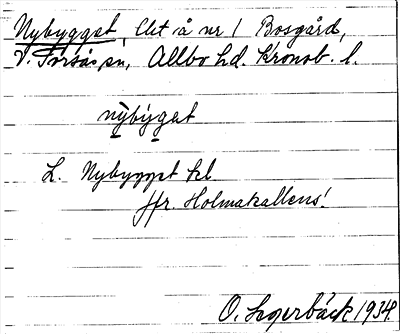 Nybygget, lht å nr 1 Bosgård,
V. Torsås sn, Allbo hd. Kronob. l.
nỳbýgət
L. Nybygget kl
jfr. Holmakallens!
O. Lagerbäck 1934.